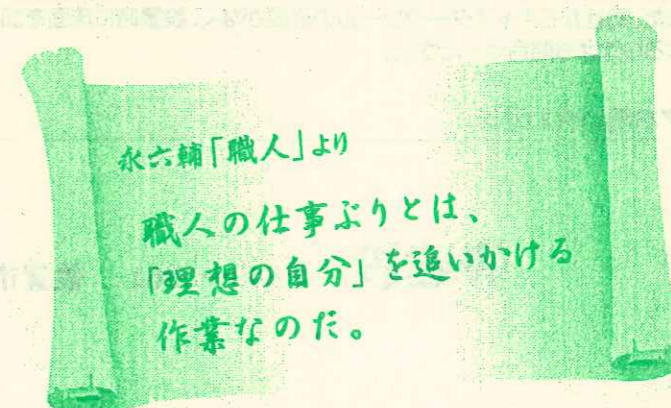 永六輔「職人」より
職人の仕事ぶりとは、
「理想の自分」を追いかける
作業なのだ。